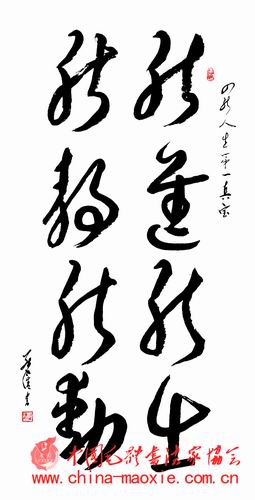 能進能止
能静能動
四能人生第一真宝
中国毛体書法家協会
www.china-maoxie.com.cn